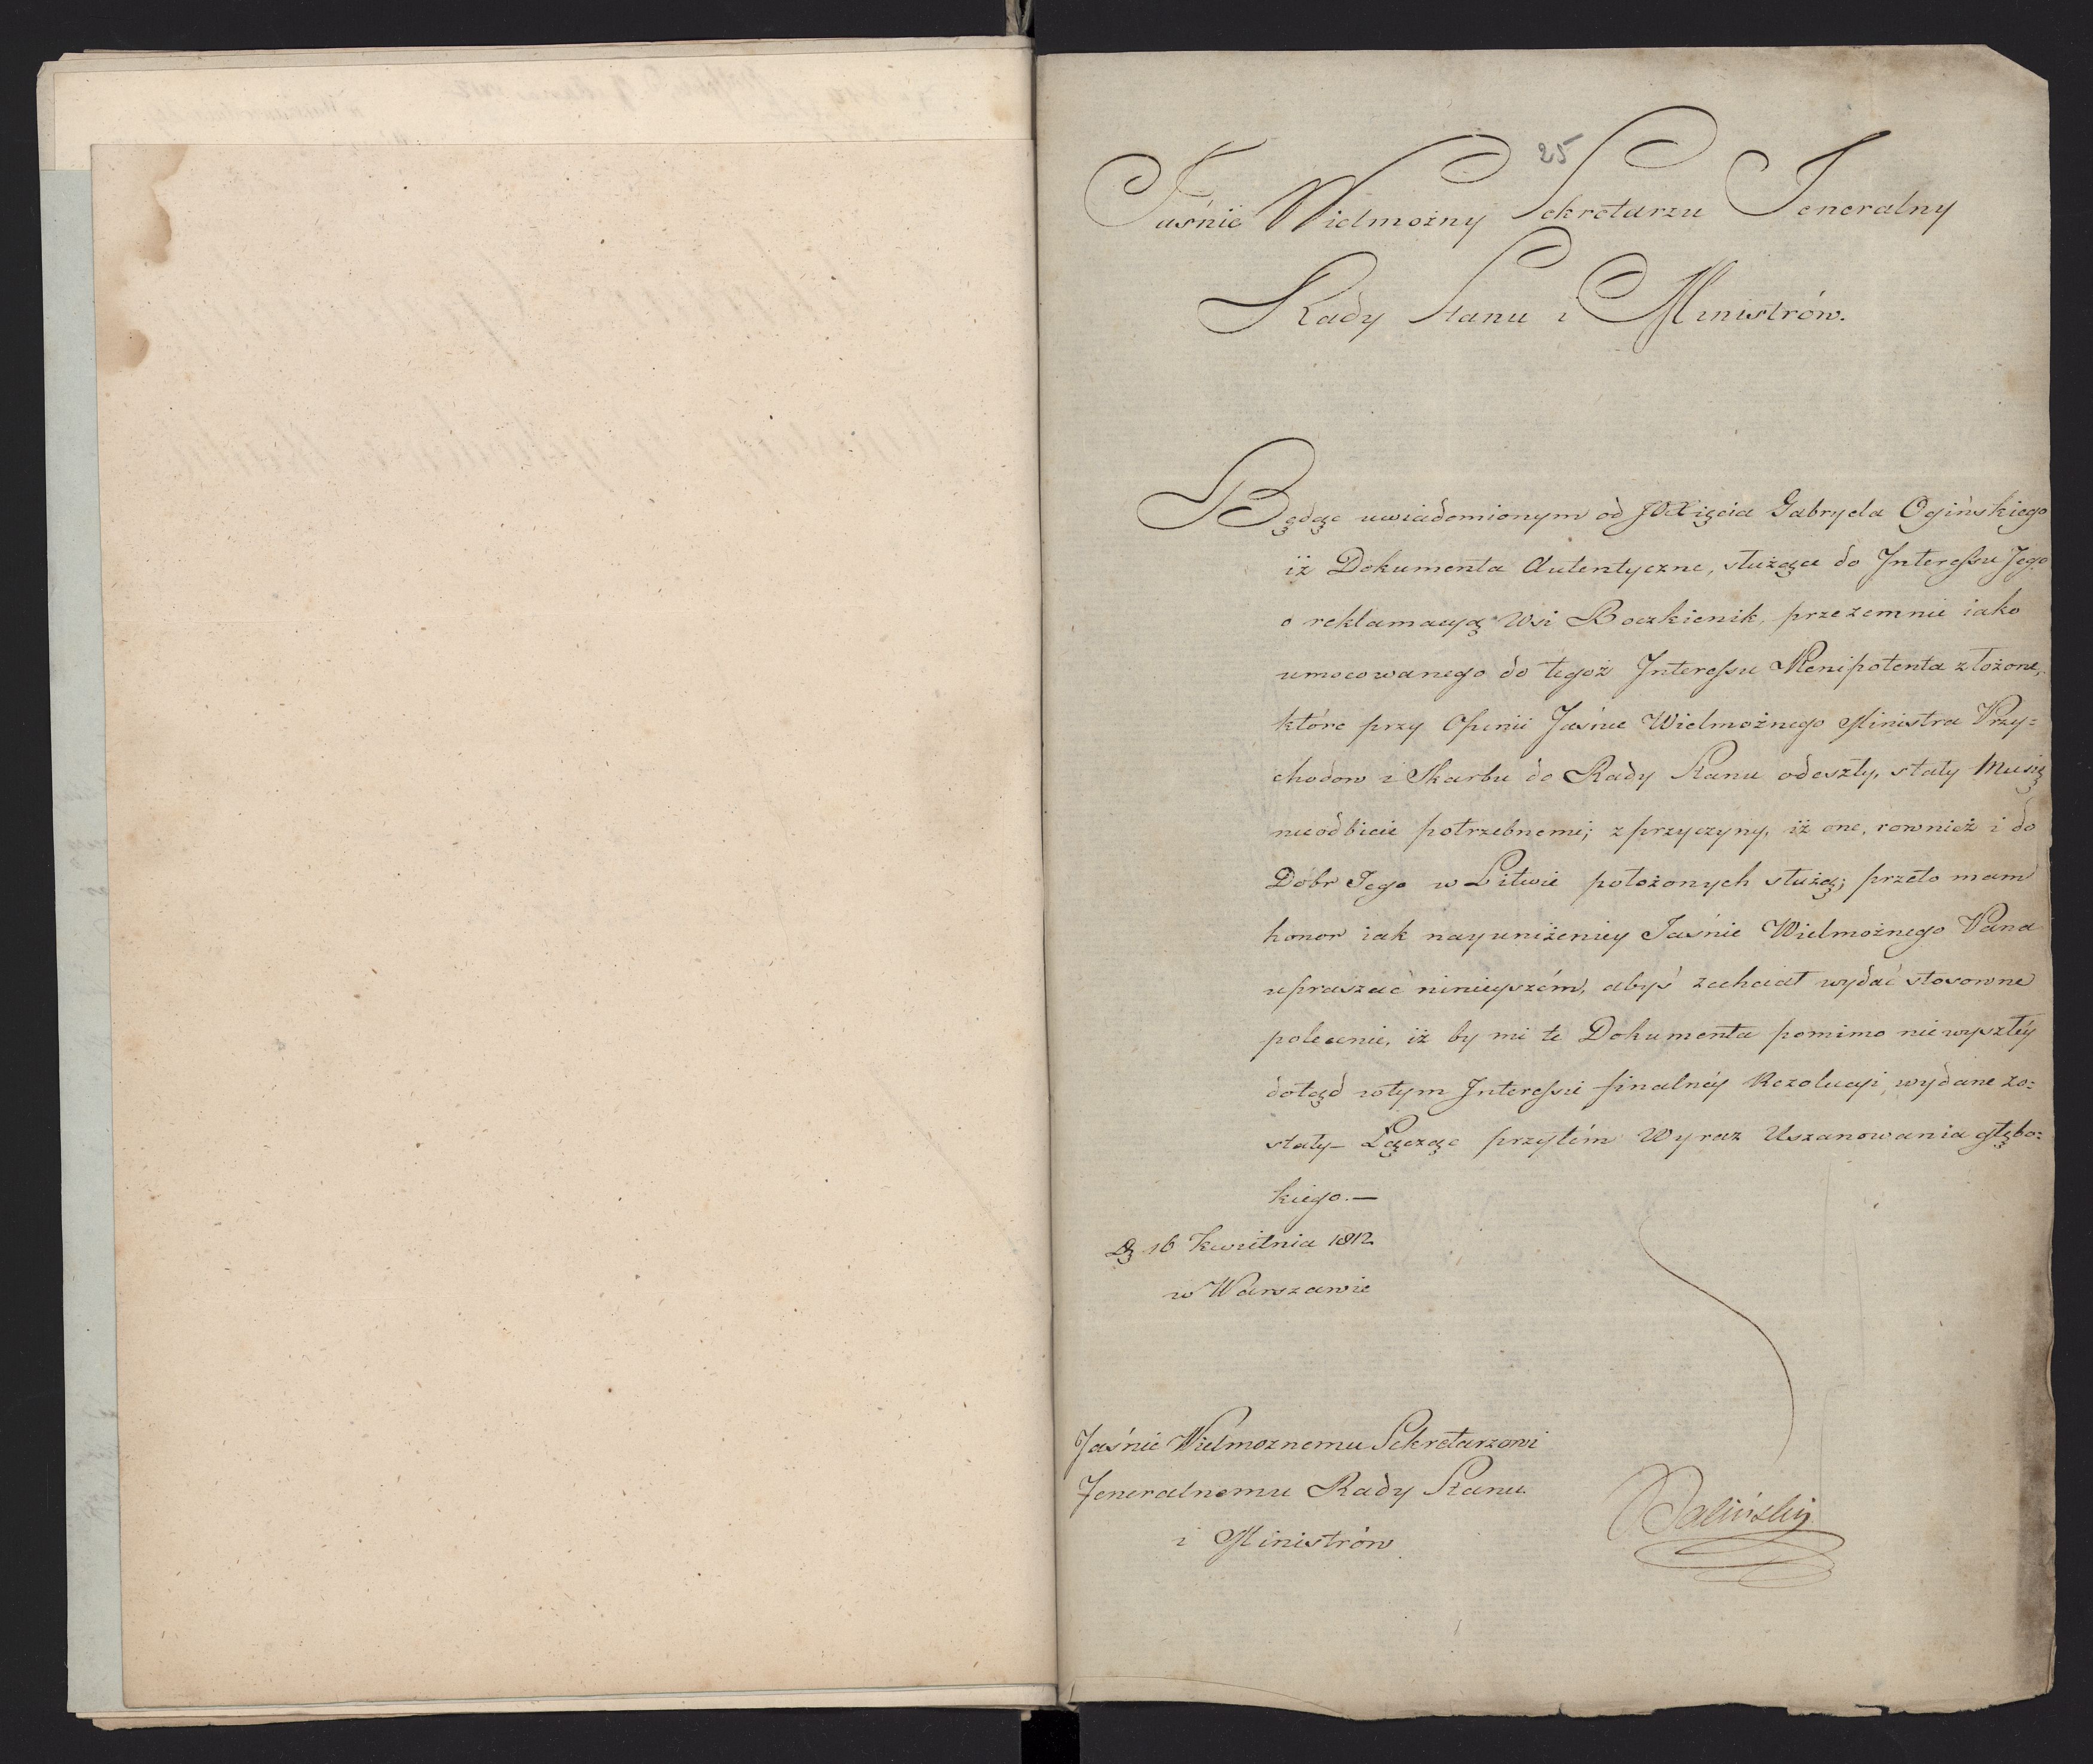 25
Jaśnie Wielmożny Sekretarzu Jeneralny
Rady Stanu i Ministrów.
Będąc uwiadomionym od JOXięcia Gabryela Ogińskiego
iż Dokumenta Autentyczne, służące do Interessu Jego
o reklamacyą Wsi Boczkienik, przezemnie iako
umocowanego do tegoż Interessu Plenipotenta złożone,
które przy Opinii Jaśnie Wielmożnego Ministra Przy=
chodow i Skarbu do Rady Stanu odeszły, stały Mu się
nieodbicie potrzebnemi; z przyczyny, iż one, rownież i do
Dóbr Jego w Litwie położonych służą; przeto mam
honor iak nayuniżeniey Jaśnie Wielmożnego Pana
upraszać ninieyszém, abyś zechciał wydać stosowne
polecenie, iż by mi te Dokumenta pomimo nie wyszłéy
dotąd w tym Interessie finalnéy Rezolucyi, wydane zo=
stały_ Łącząc przytém Wyraz Uszanowania głębo=
kiego.—
16 Kwietnia 1812
w Warszawie
Jaśnie Wielmoznemu Sekretarzowi
Jeneralnemu Rady Stanu
i Ministrów